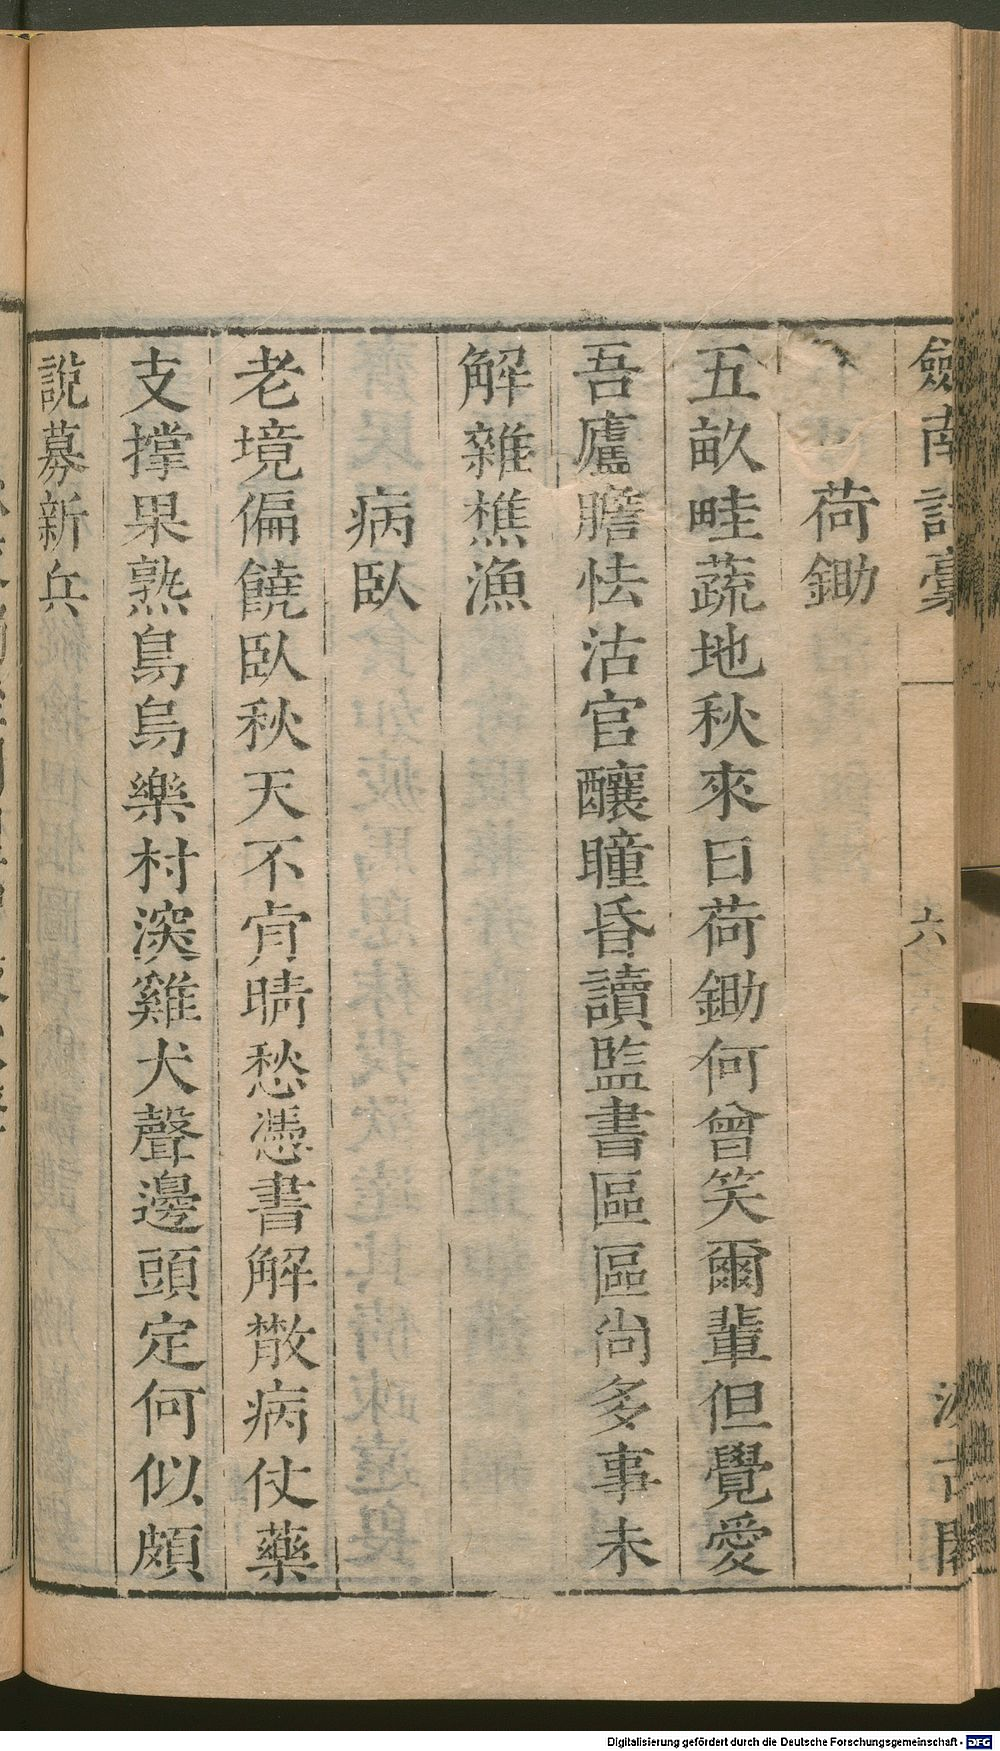 劒南詩稾
六
汲古閣
荷鋤
五畝畦蔬地秋來日荷鋤何曾笑爾輩但覺愛
吾廬膽怯沽官釀瞳昏讀監書區區尚多事未
解雜樵漁
病臥
老境偏饒臥秋天不肯晴愁憑書解散病仗藥
支撐果熟鳥烏樂村深雞犬聲邊頭定何似頗
說募新兵
Digitalisierung gefördert durch die Deutsche Forschungsgemeinschaft - DFG